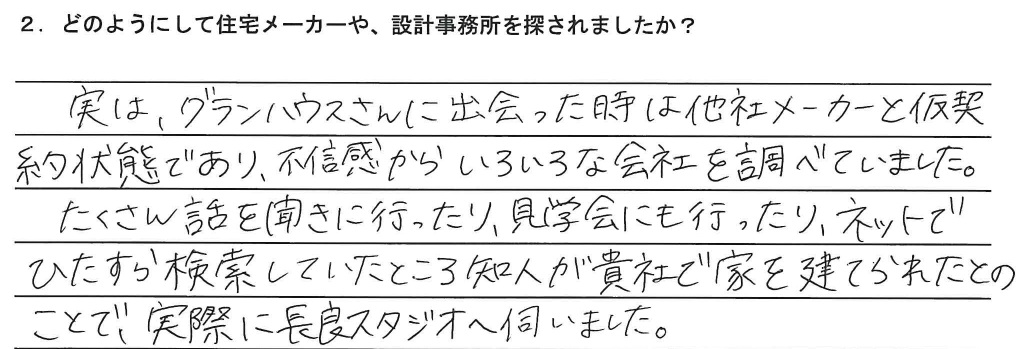 2. どのようにして住宅メーカーや、設計事務所を探されましたか？
実は、グランハウスさんに出会った時は他社メーカーと仮契
約状態であり、不信感からいろいろな会社を調べていました。
たくさん話を聞きに行ったり、見学会にも行ったり、ネットで
ひたすら検索していたところ知人が貴社で家を建てられたとの
ことで、実際に長良スタジオへ伺いました。